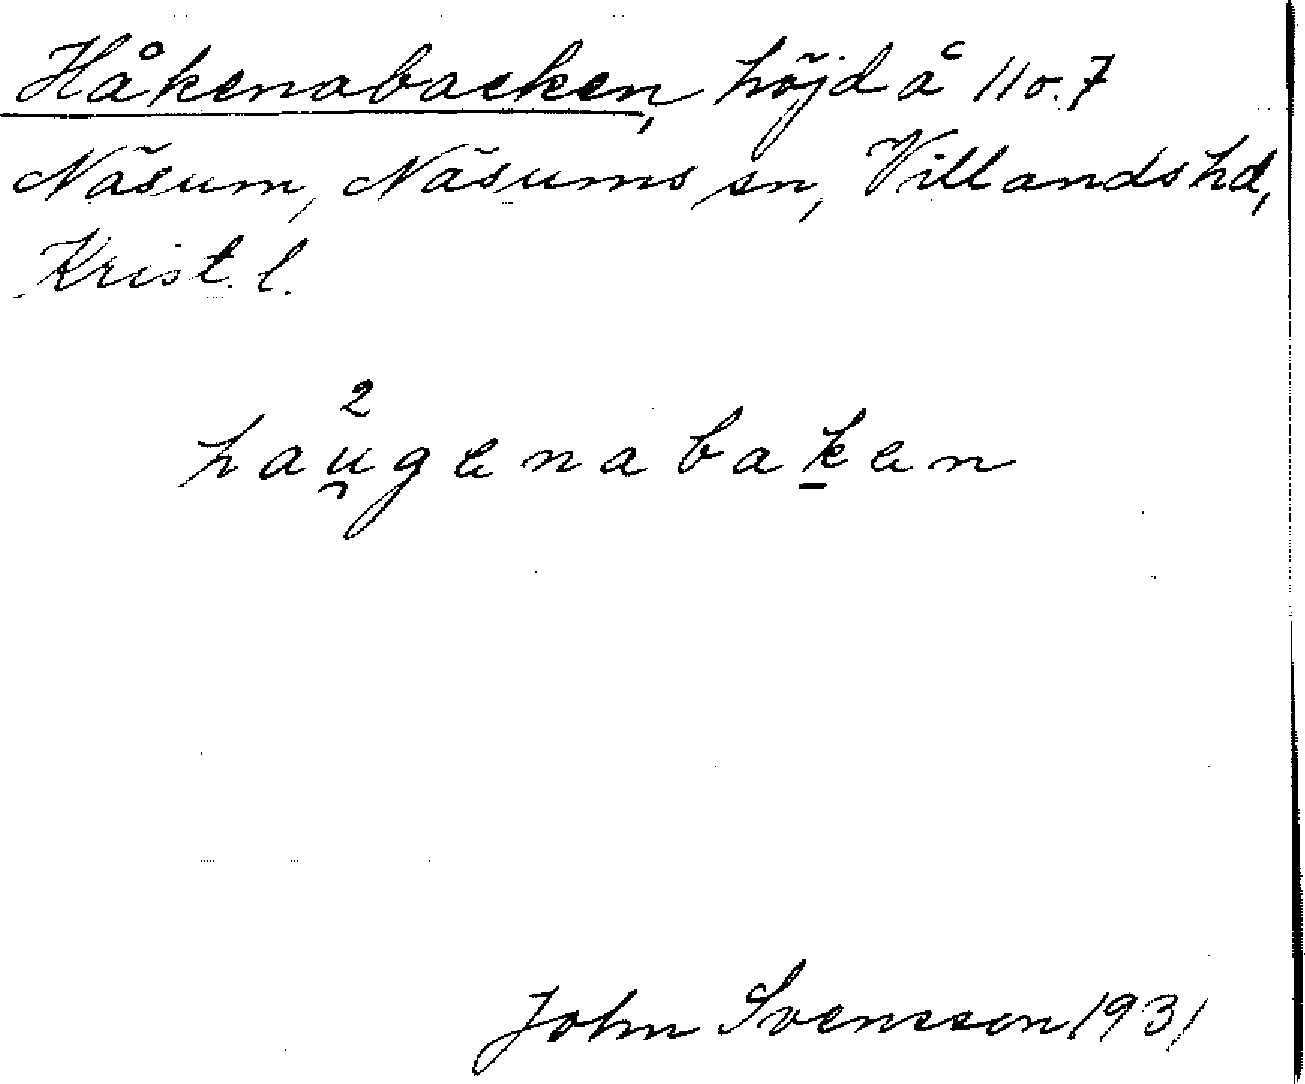 Håkenabacken, höjd å 11 o. 7
Näsum, Näsums sn, Villands hd,
Krist. l.
2
hau̯genabak̲en
John Svensson 1931